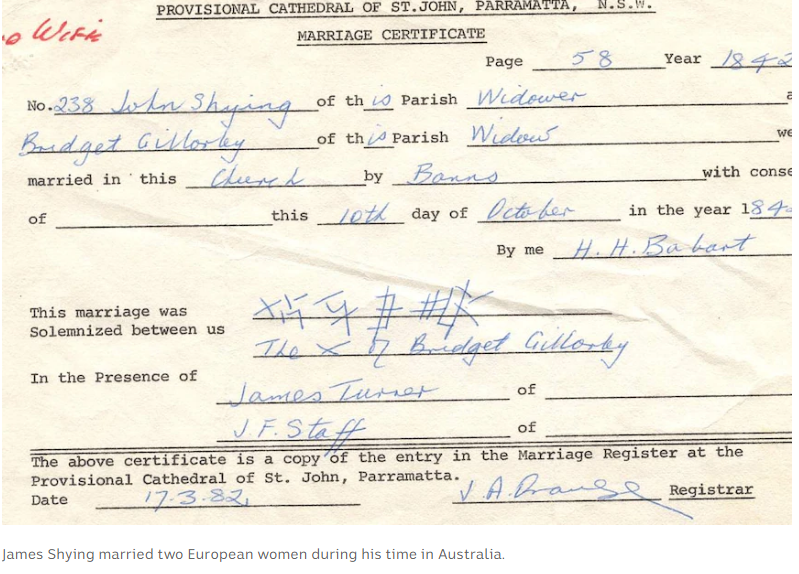 PROVISIONAL CATHEDRAL OF ST.JOHN, PARRAMATTA, N.S.W.
o WIFE
MARRIAGE CERTIFICATE
Page 58 Year 1842
No.238 John Shying of this Parish Widower a
Bridget Gillorley of this Parish Widow we
married in this Church by Banns with conse
of this 10th day of October in the year 184
By me H. H. Bobart
This marriage was
Solemnized between us
The X of Bridget Gillorley
In the Presence of
James Turner of
J.F. Staff of
The above certificate is a copy of the entry in the Marriage Register at the
Provisional Cathedral of St. John, Parramatta.
Date 17.3.82. J.A. Registrar
James Shying married two European women during his time in Australia.